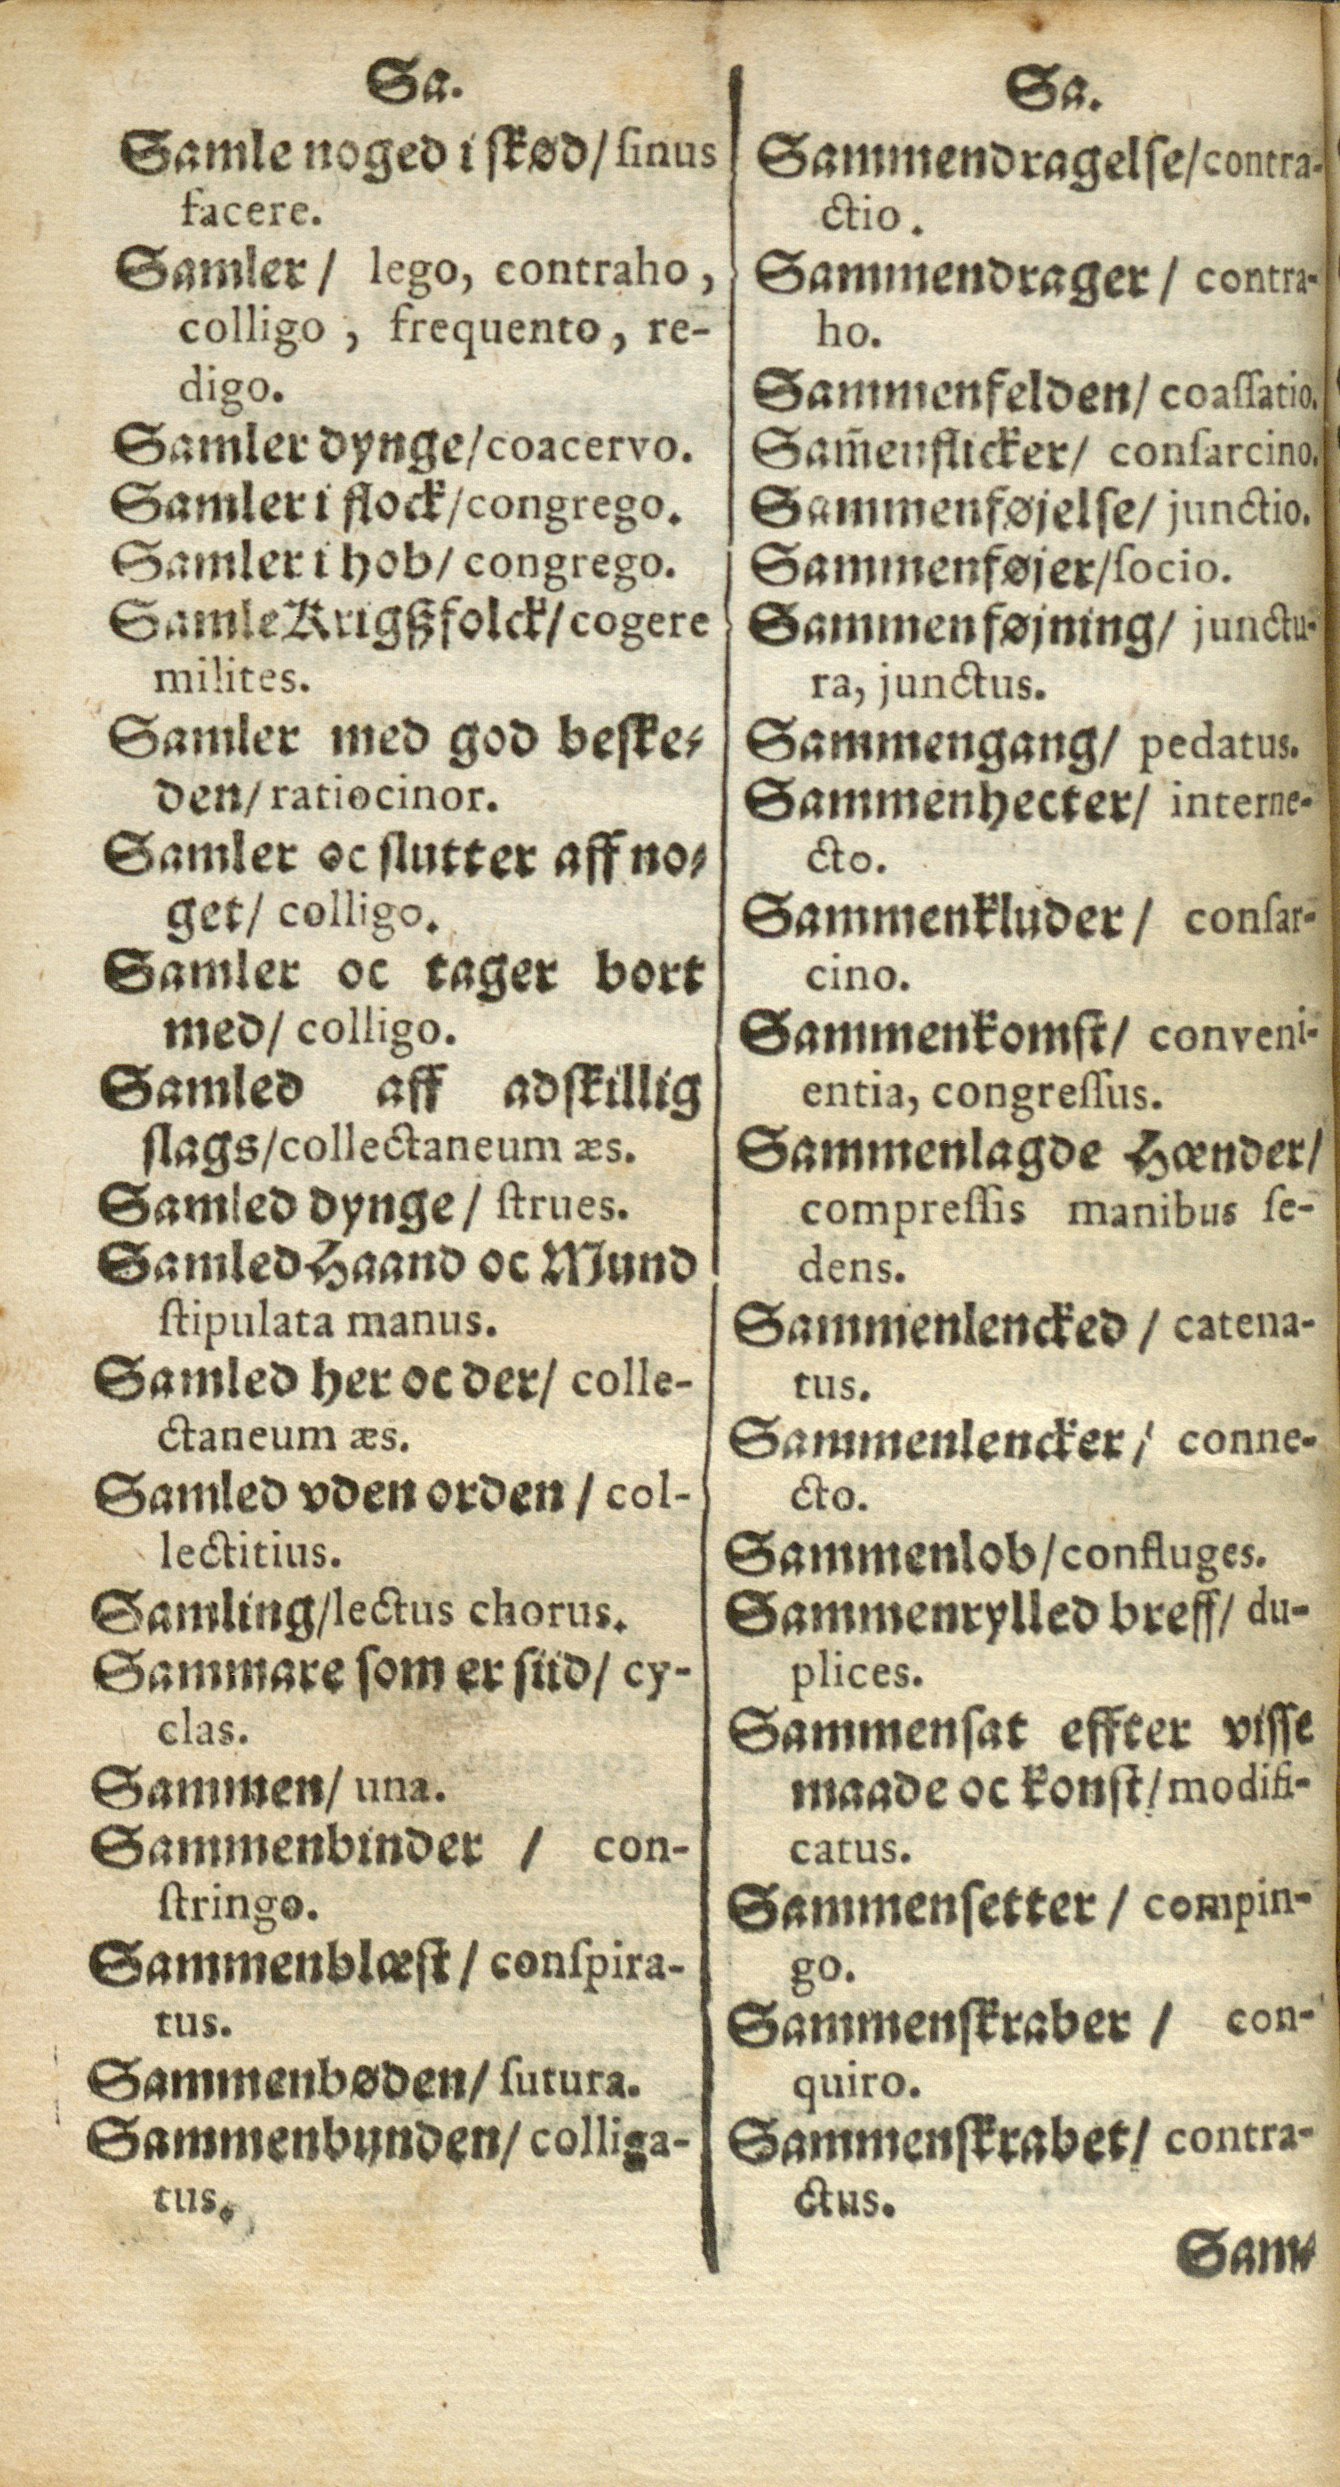 Sa.
Samle noged i skød/ sinus
facere.
Samler / lego, contraho,
colligo, frequento, re-
digo.
Samler dynge/coacervo.
Samler i flock/congrego.
Samler i hob/ congrego.
Samle Krigßfolck/ cogere
milites.
Samler med god beske-
den/ ratiocinor.
Samler oc slutter aff no-
get/ colligo.
Samler oc tager bort
med/ colligo.
Samled aff adskillig
slags/collectaneum æs.
Samled dynge/ strues.
Samled Haand oc Mund
stipulata manus.
Samled her oc der/ colle-
ctaneum æs.
Samled vden orden / col-
lectitius.
Samling/lectus chorus.
Sammare som er siid/ cy-
clas.
Sammen/ una.
Sammenbinder / con-
stringo.
Sammenblæst / conspira-
tus.
Sammenbøden/ sutura.
Sammenbunden/ colliga-
tus.
Sa.
Sammendragelse/contra-
ctio.
Sammendrager / contra-
ho.
Sammenfelden/ coassatio.
Sam̃enflicker/ consarcino.
Sammenføjelse/ junctio.
Sammenføjer/socio.
Sammenføjning/ junctu-
ra, junctus.
Sammengang/ pedatus.
Sammenhecter/ interne-
cto.
Sammenkluder / consar-
cino.
Sammenkomst/ conveni-
entia, congressus.
Sammenlagde Hænder/
compressis manibus se-
dens.
Sammenlencked / catena-
tus.
Sammenlencker / conne-
cto.
Sammenlob/confluges.
Sammenrylled breff/ du-
plices.
Sammensat effter visse
maade oc konst/modifi-
catus.
Sammensetter / compin-
go.
Sammenskraber / con-
quiro.
Sammenskrabet/ contra-
ctus.
Sam-